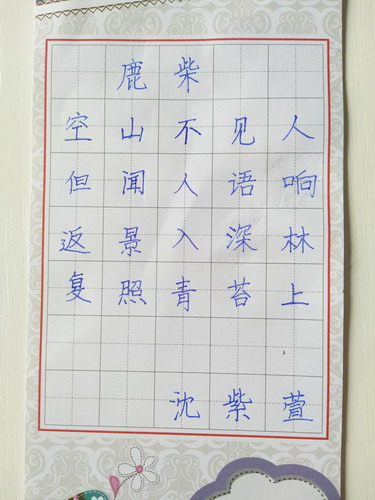 鹿柴
空山不见人
但闻人语响
返景入深林
复照青苔上
沈紫萱